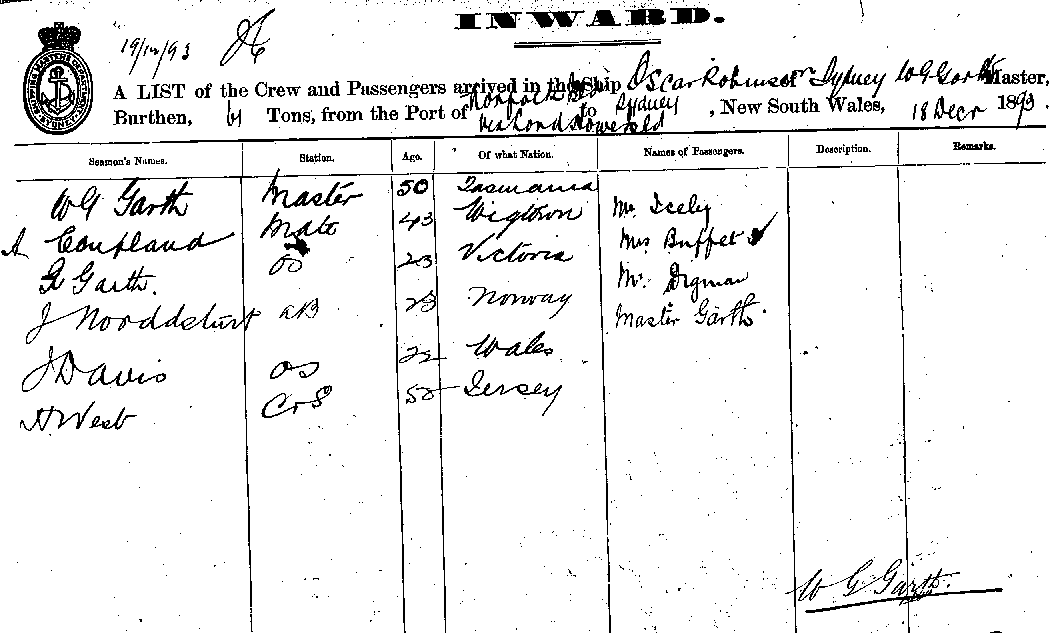 INWARD.
19/12/93
A LIST of the Crew and Passengers arrived in the Ship Oscar Robinson of Sydney W G Garth Master,
Burthen, Tons, from the Port of Norfolk Isd to Sydney, New South Wales, 18 Decr 1893.
via Lord Howe Isld
Seamen's Names. Station. Age. Of what Nation. Names of Passengers. Description. Remarks.
W G Garth Master 50 Tasmania
A Coupland Mate 43 Wigtown Mr Icely
G Garth. OS 23 Victoria Mrs Buffet
J AB 28 Norway Mr
Master Garth.
J Davis OS 22 Wales
H West 50 Jersey
W G Garth.